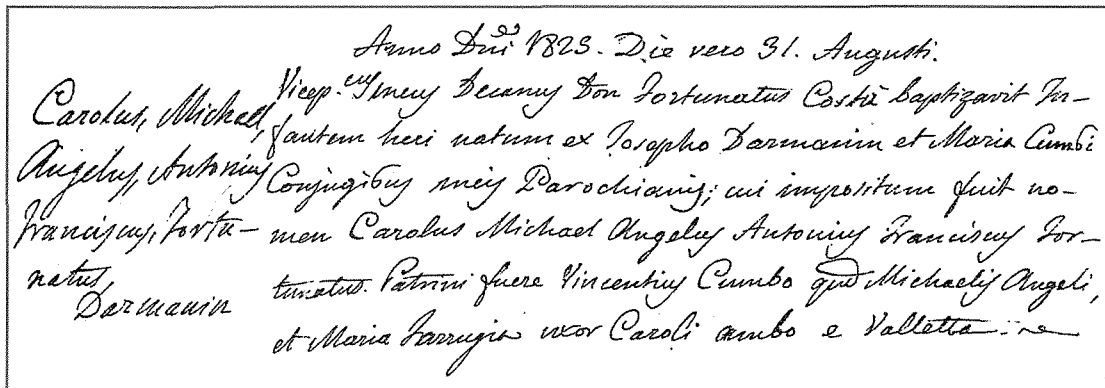 Anno Dñi 1823. Die vero 31. Augusti.
Carolus, Michael,
Angelus, Antonius
Franciscus, Fortu-
natus,
Darmanin
Vicep.cus meus Decanus Don Fortunatus Costa baptizavit In-
fantem heri natum ex Josepho Darmanin et Maria Cumbi
Conjugibus meis Parochianis; cui impositum fuit no-
men Carolus Michael Angelus Antonius Franciscus For-
tunatus. Patrini fuere Vincentius Cumbo qm̃ Michaelis Angeli,
et Maria Farrugia uxor Caroli ambo e Valletta